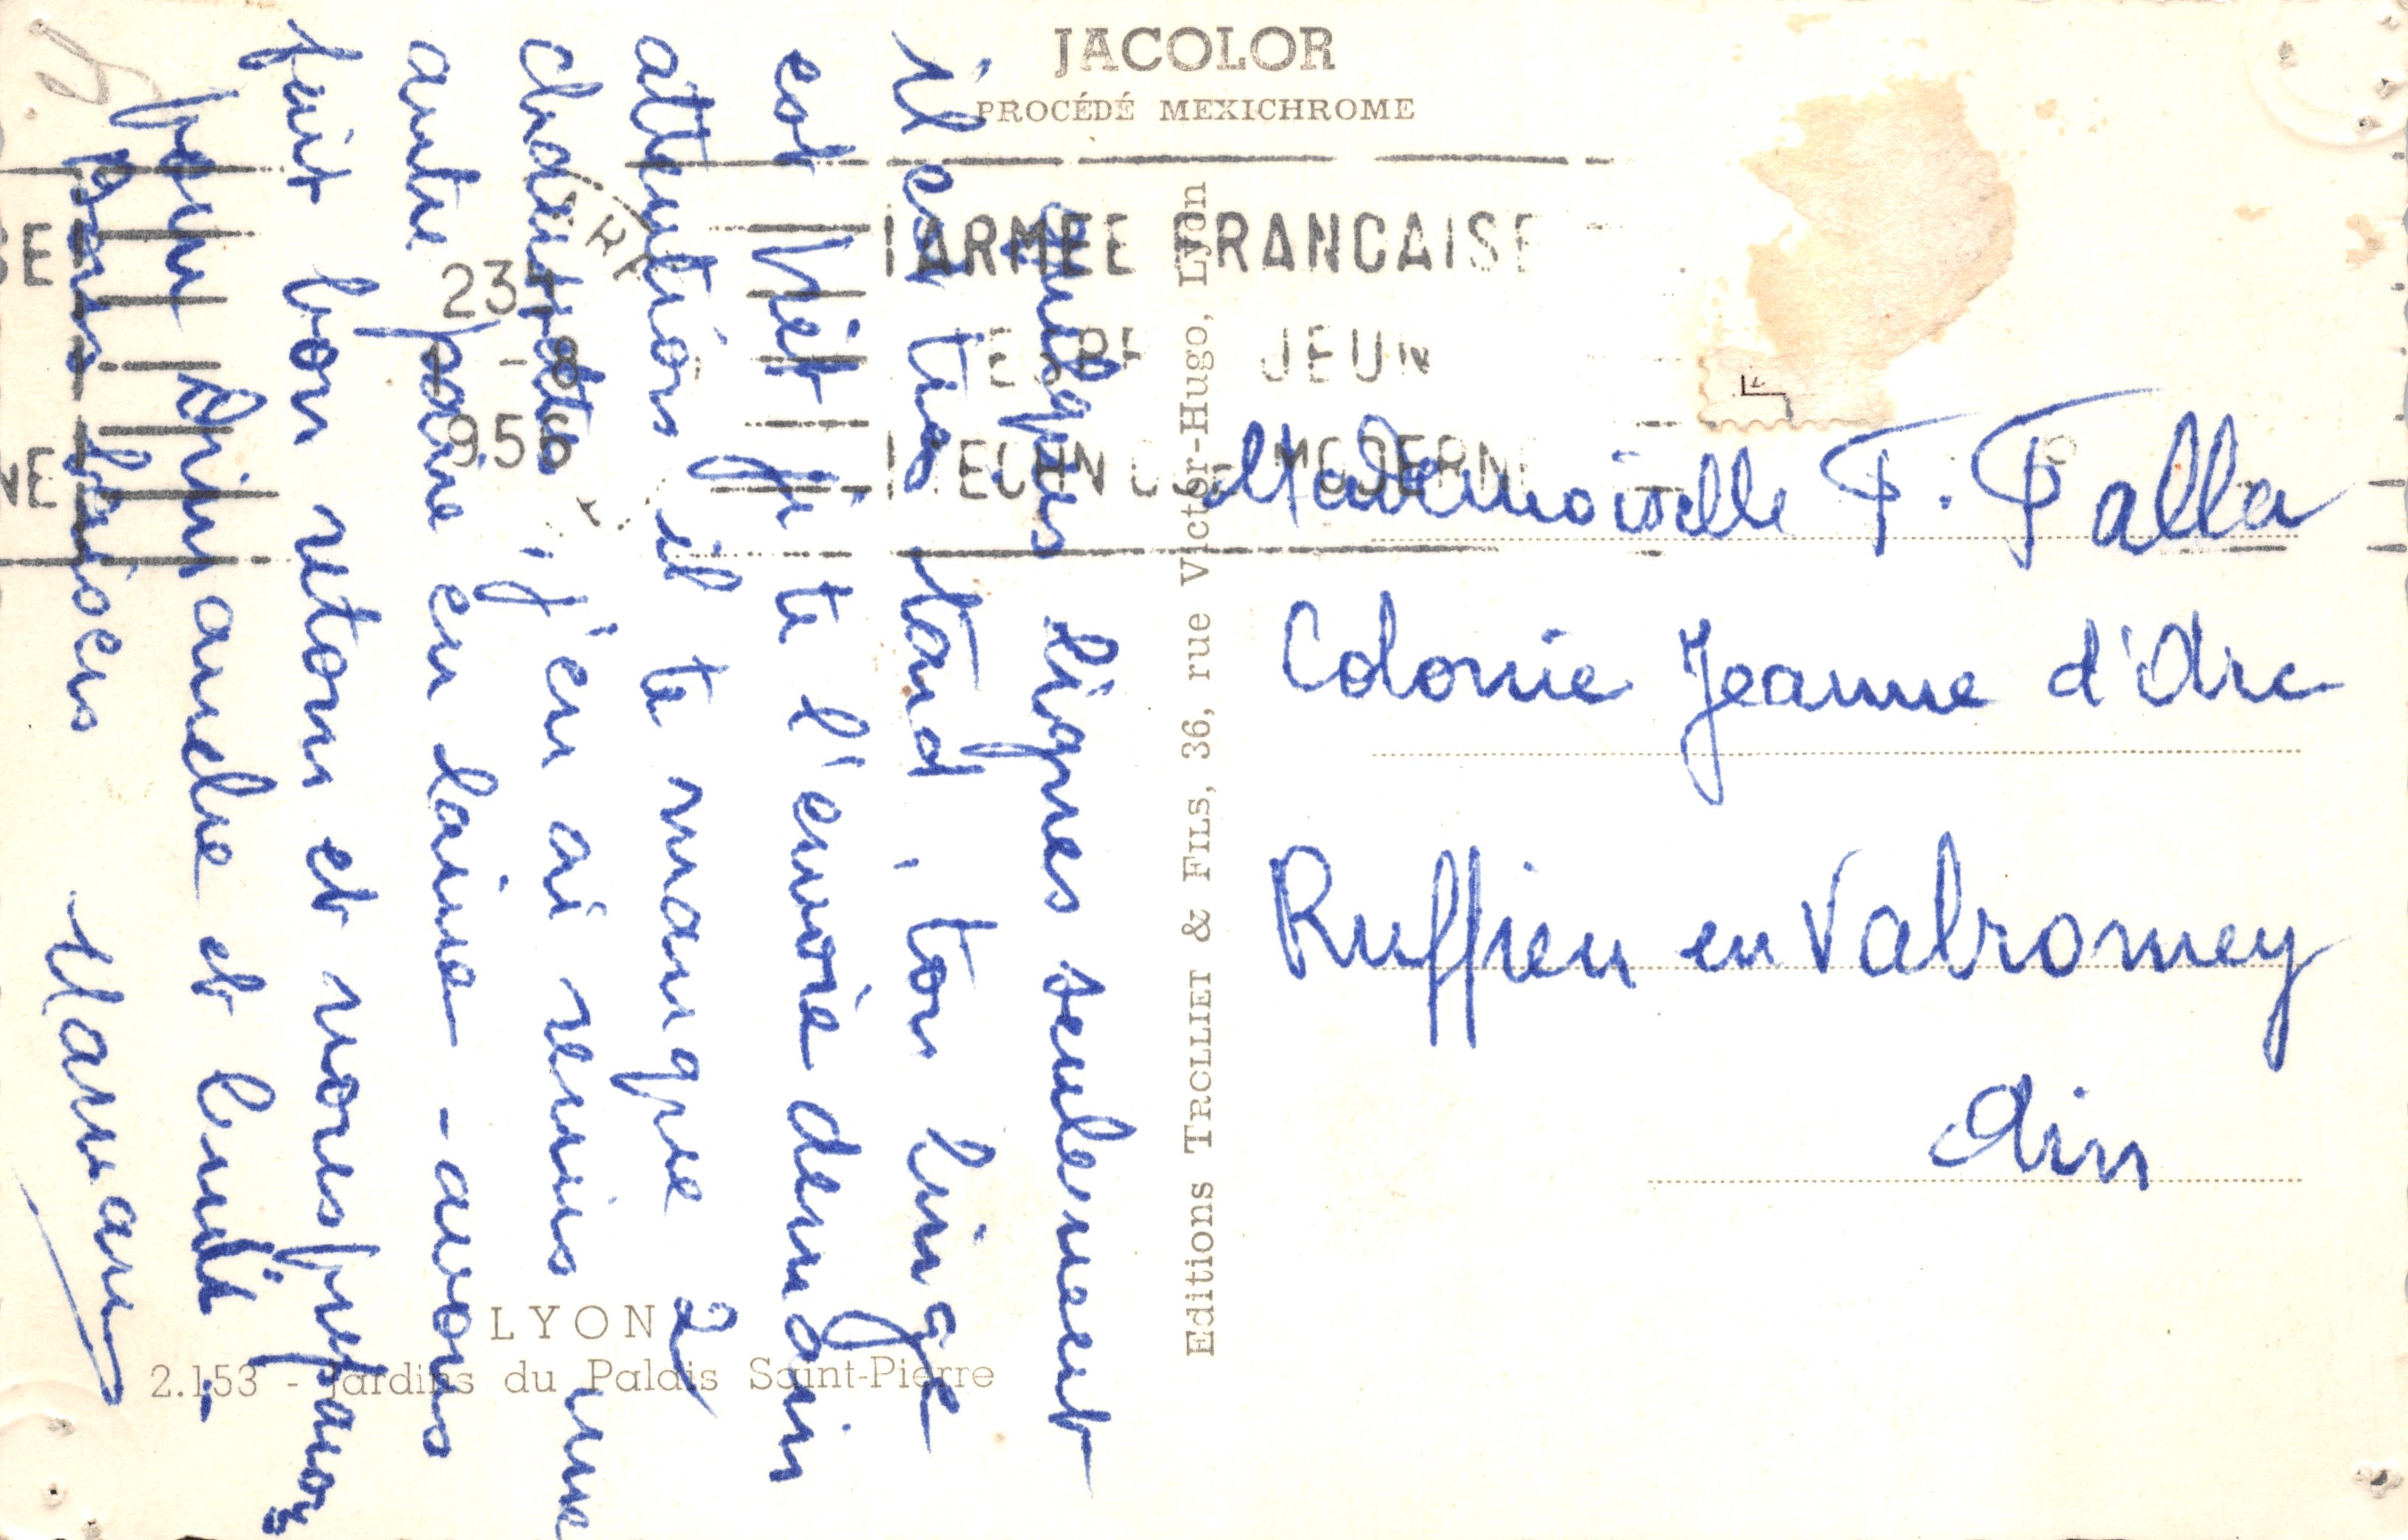 JACOLOR
PROCÉDÉ MEXICHROME
L'ARMEE FRANCAISE
JEUN
TECHNIQUE MODERNE
23
-8
956
SE
NE
quelques lignes seulement
il est tard, ton linge
est prêt je te l'envoie demain
attention il te manque 2
chaussettes, j'en ai remis une
autre paire en laine - avons
fait bon retour et nous préparons
pour Dimanche et Lundi.
gros baisers Maman
Mademoiselle P. Palla
Colonie Jeanne d'Arc
Ruffieu en Valromey
Ain
Editions TROLLIET & FILS, 36, rue Victor-Hugo, Lyon
LYON
2.153 - Jardins du Palais Saint-Pierre